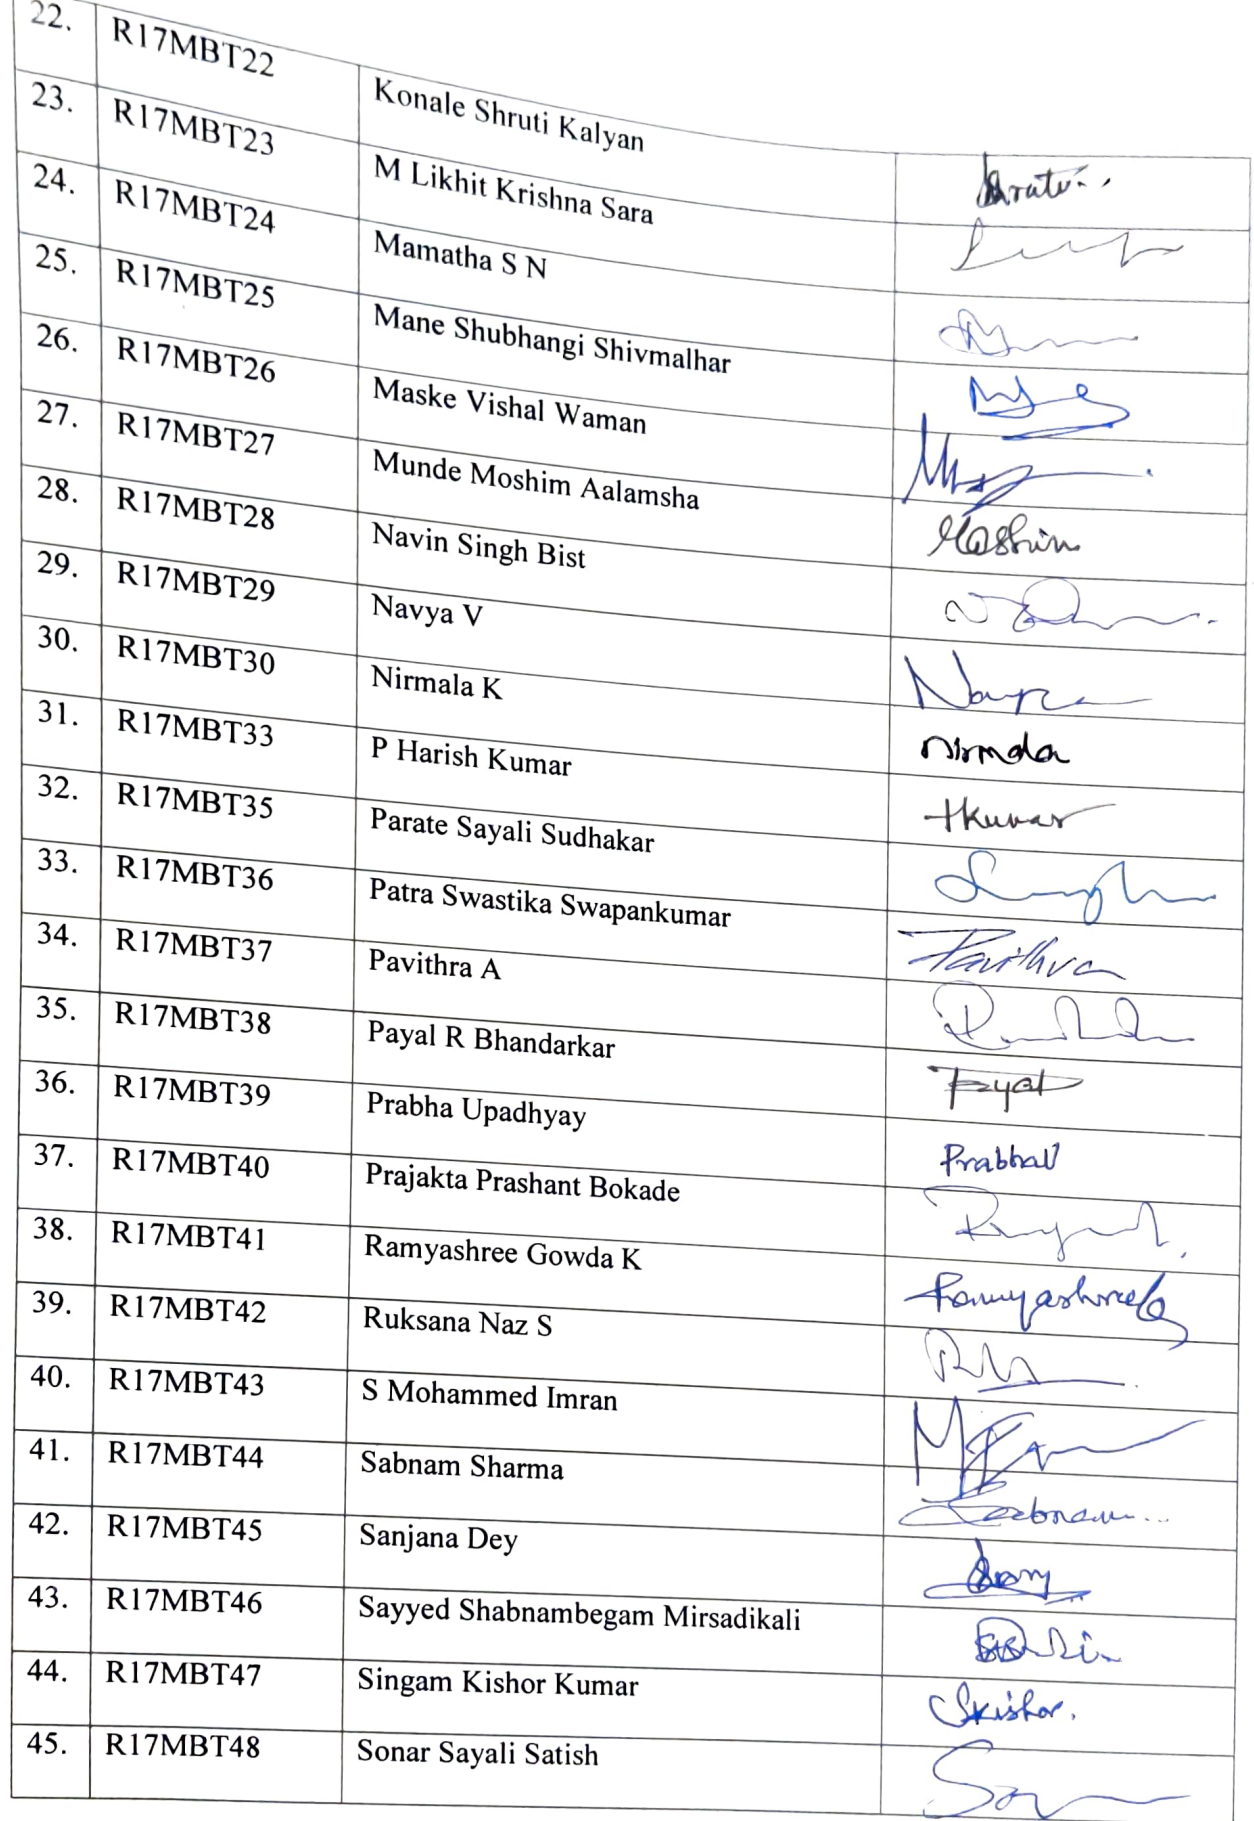 22. R17MBT22 Konale Shruti Kalyan
23. R17MBT23 M Likhit Krishna Sara
24. R17MBT24 Mamatha S N
25. R17MBT25 Mane Shubhangi Shivmalhar
26. R17MBT26 Maske Vishal Waman
27. R17MBT27 Munde Moshim Aalamsha
28. R17MBT28 Navin Singh Bist
29. R17MBT29 Navya V
30. R17MBT30 Nirmala K
31. R17MBT33 P Harish Kumar
32. R17MBT35 Parate Sayali Sudhakar
33. R17MBT36 Patra Swastika Swapankumar
34. R17MBT37 Pavithra A Pavithra
35. R17MBT38 Payal R Bhandarkar
36. R17MBT39 Prabha Upadhyay Payal
37. R17MBT40 Prajakta Prashant Bokade
38. R17MBT41 Ramyashree Gowda K
39. R17MBT42 Ruksana Naz S
40. R17MBT43 S Mohammed Imran
41. R17MBT44 Sabnam Sharma
42. R17MBT45 Sanjana Dey
43. R17MBT46 Sayyed Shabnambegam Mirsadikali
44. R17MBT47 Singam Kishor Kumar Skishor.
45. R17MBT48 Sonar Sayali Satish